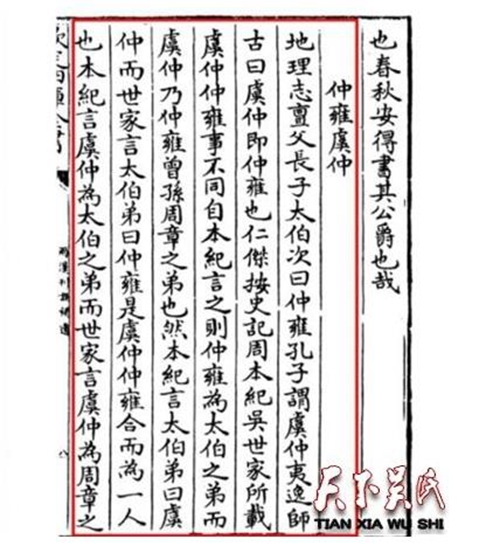 也春秋安得書其公爵也哉
仲雍虞仲
地理志亶父長子太伯次曰仲雍孔子謂虞仲夷逸師
古曰虞仲即仲雍也仁傑按史記周本紀吳世家所載
虞仲仲雍事不同自本紀言之則仲雍為太伯之弟而
虞仲乃仲雍曾孫周章之弟也然本紀言太伯弟曰虞
仲而世家言太伯弟曰仲雍是虞仲仲雍合而為一人
也本紀言虞仲為太伯之弟而世家言虞仲為周章之
欽定四庫全書
兩漢刊誤補遺
八
天下吴氏
TIAN XIA WU SHI